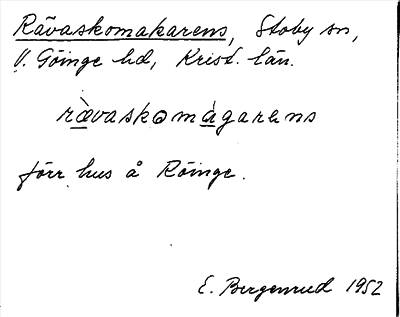 Rävaskomakarens, Stoby sn,
V. Göinge hd, Krist. län.
ræ̀vaskomágarɛns
förr hus å Röinge.
E. Bergenrud 1952